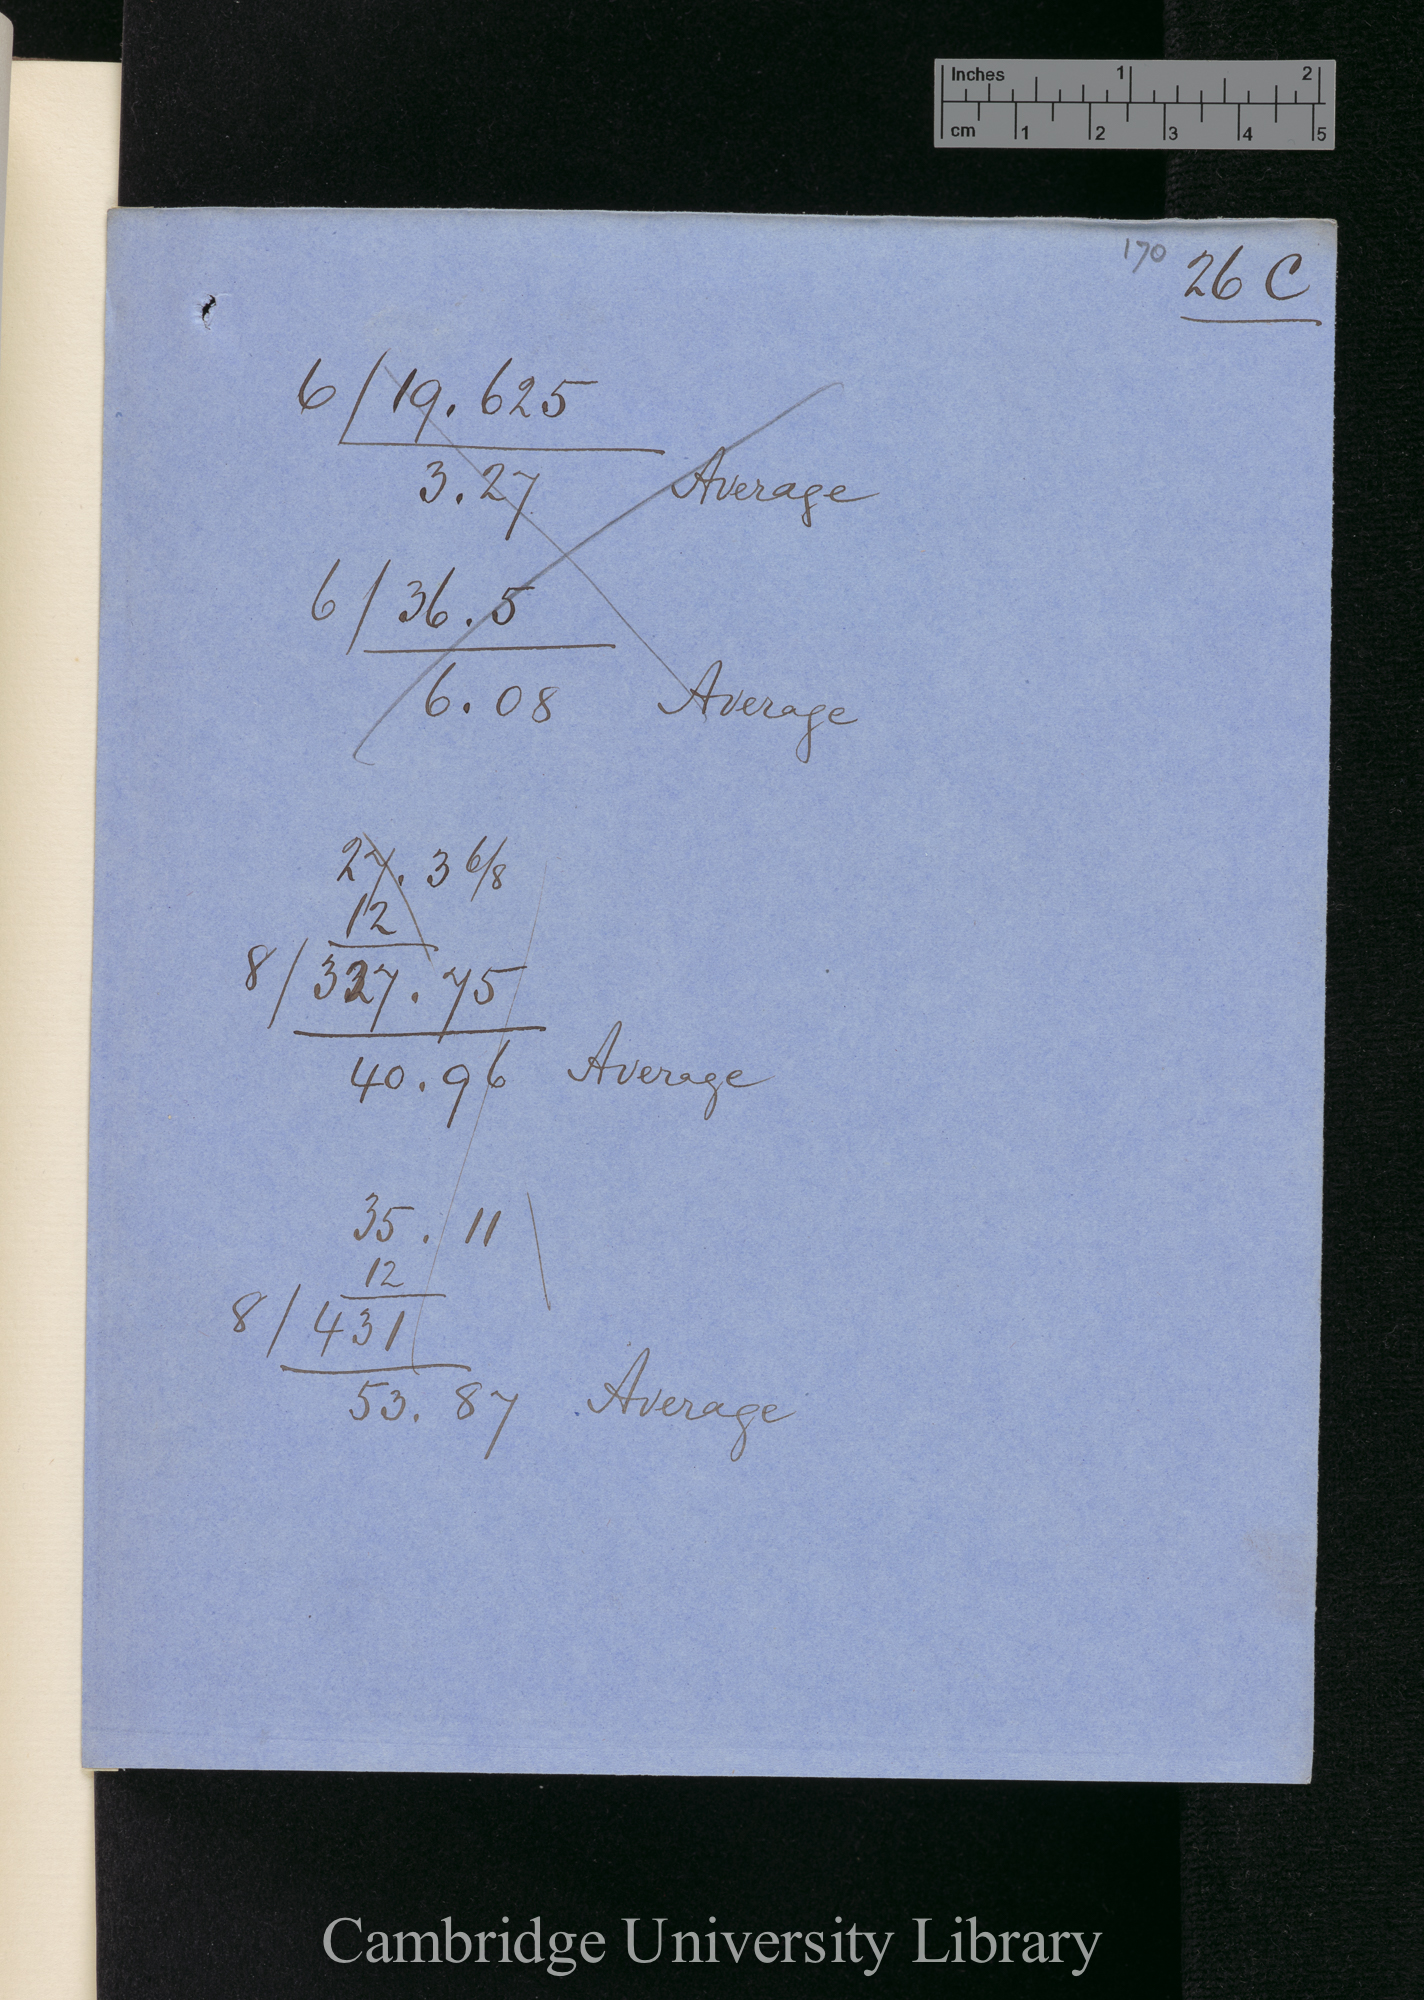 Inches 1 2
cm 1 2 3 4 5
170 26 C
6 / 19.625
3.27 Average
6 / 36.5
6.08 Average
27.3 6/8
12
8 / 327.75
40.96 Average
35.11
12
8 / 431
53.87 Average
Cambridge University Library